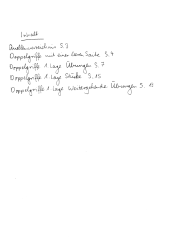 Inhalt
Quellenverzeichnis S. 3
Doppelgriffe mit einer leeren Saite S. 4
Doppelgriffe 1 Lage Übungen S. 7
Doppelgriffe 1 Lage Stücke S. 15
Doppelgriffe 1 Lage Weitergehende Übungen S.